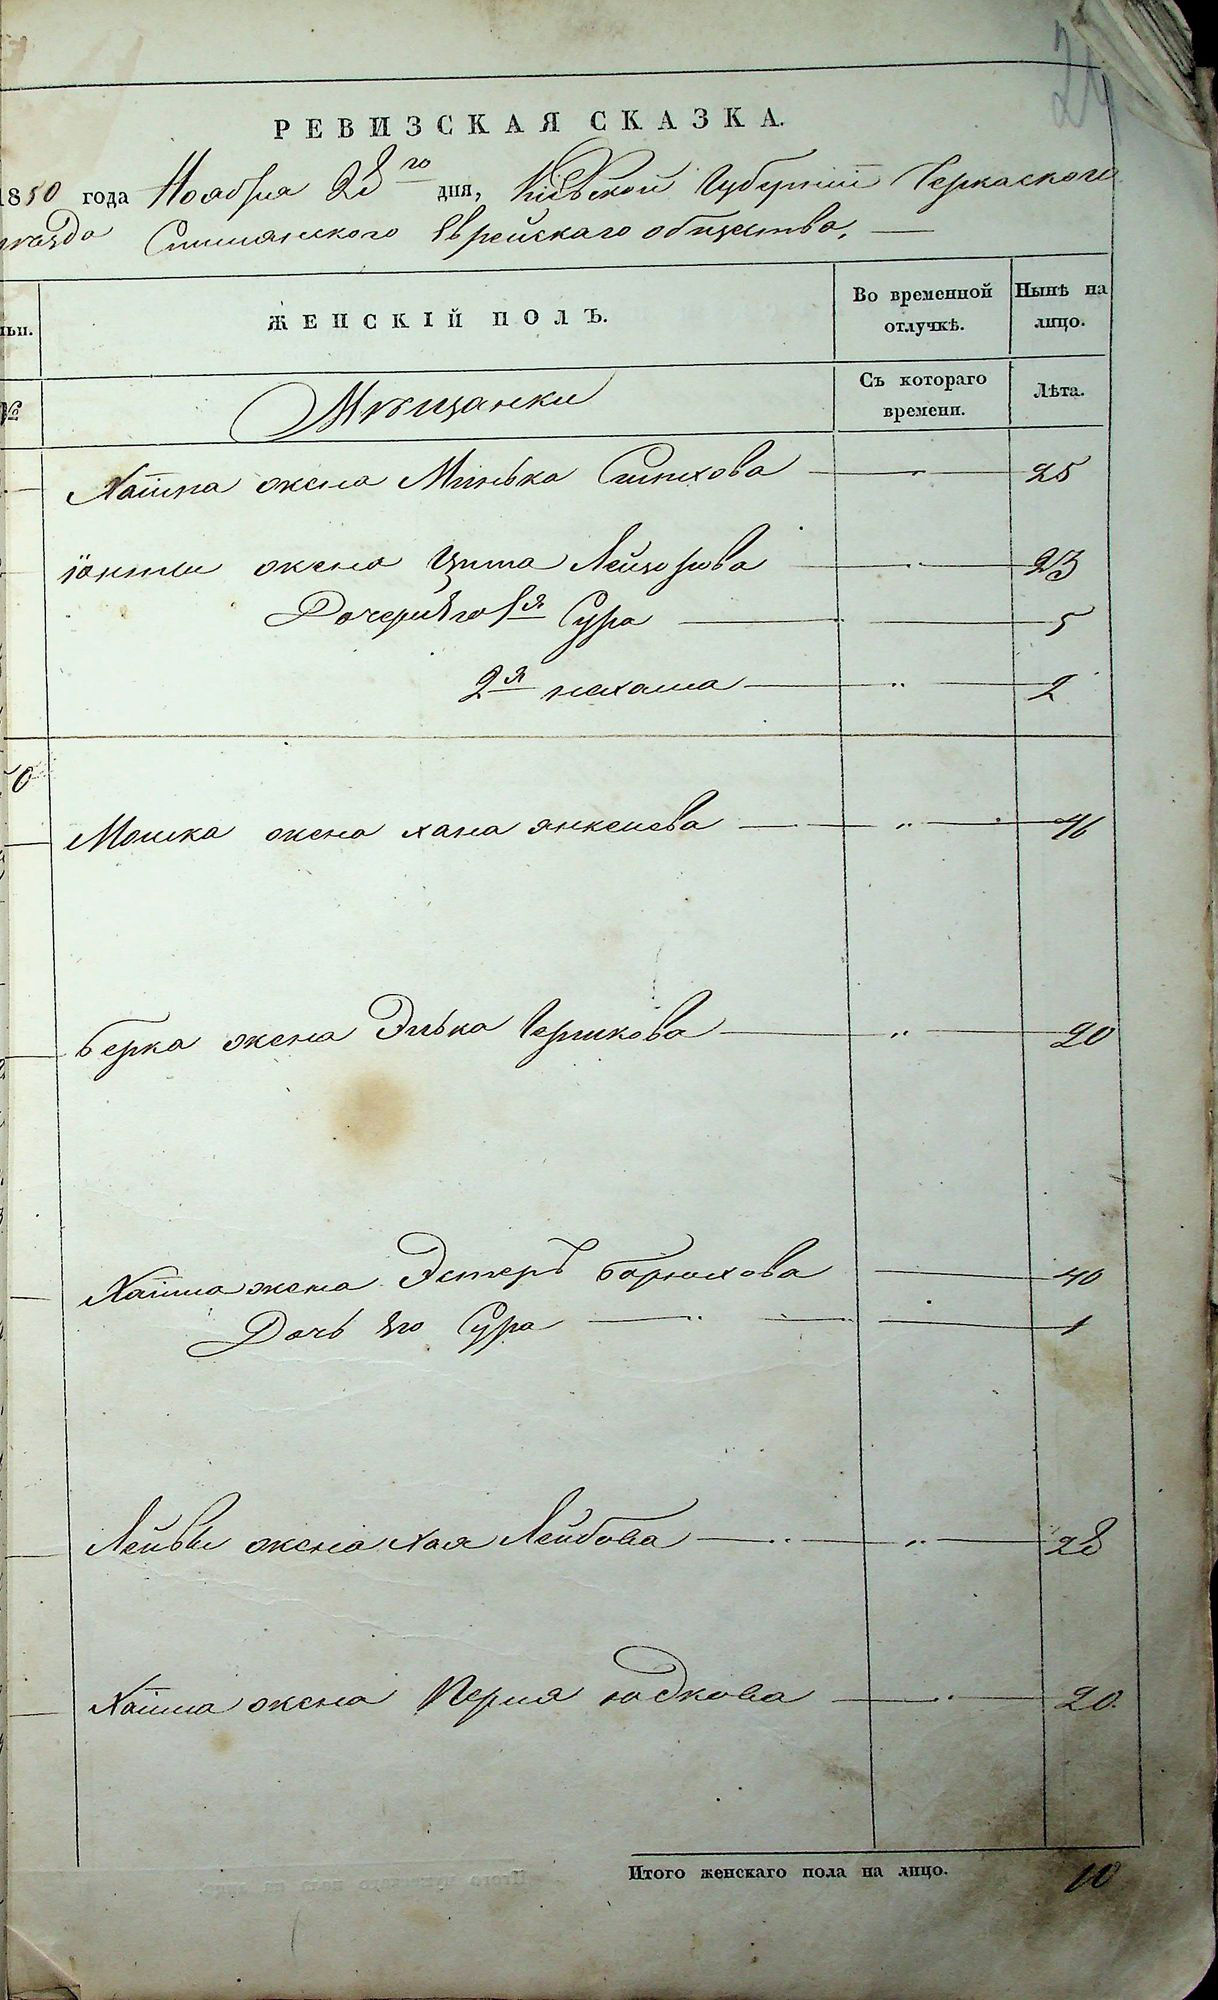 24
РЕВИЗСКАЯ СКАЗКА.
1850 года Ноября 28го дня, Кіевской Губерніи Черкаского
уезда Смилянского Еврейскаго общества,
ьи. ЖЕНСКІЙ ПОЛЪ. Во временной отлучкѣ. Нынѣ на лицо.
№ Мѣщанки Съ котораго времени. Лѣта.
Хаіима жена Минька Сипихова " 25
жена Ципа Лейзорова " 23
Дочери его 1я Сура 5
2я нехама " 2
0
Мошка жена хана янкелева " 46
Берка жена Элька Гершкова " 20
Хаіима жена Эстеръ Борухова 40
Дочь Его Сура " 1
Лейвы жена хая Лейбова " 28
Хаіима жена Перля юдкова " 20
Итого женскаго пола на лицо. 10